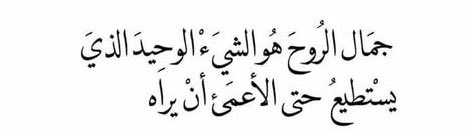 جمَال الرُوحَ هُو الشيَءْ الوحِيدَ الذيَ
يسْتطيعُ حتى الأعمَئ أنْ يراه